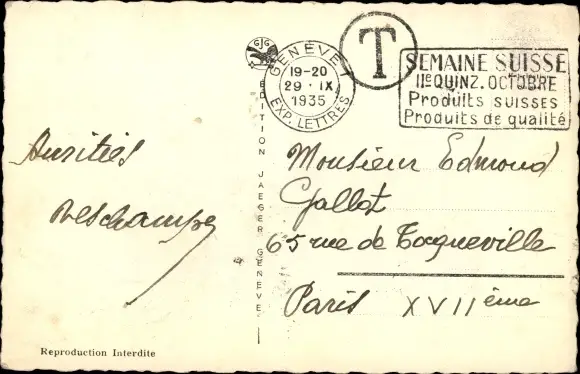 GENÈVE 1
19-20
29 · IX
1935
EXP. LETTRES
T
SEMAINE SUISSE
IIe QUINZ. OCTOBRE
Produits suisses
Produits de qualité
EDITION JAEGER GENEVE
Amitiés
Deschamps
Monsieur Edmond
Gallot
65 rue de Tocqueville
Paris XVIIème
Reproduction Interdite